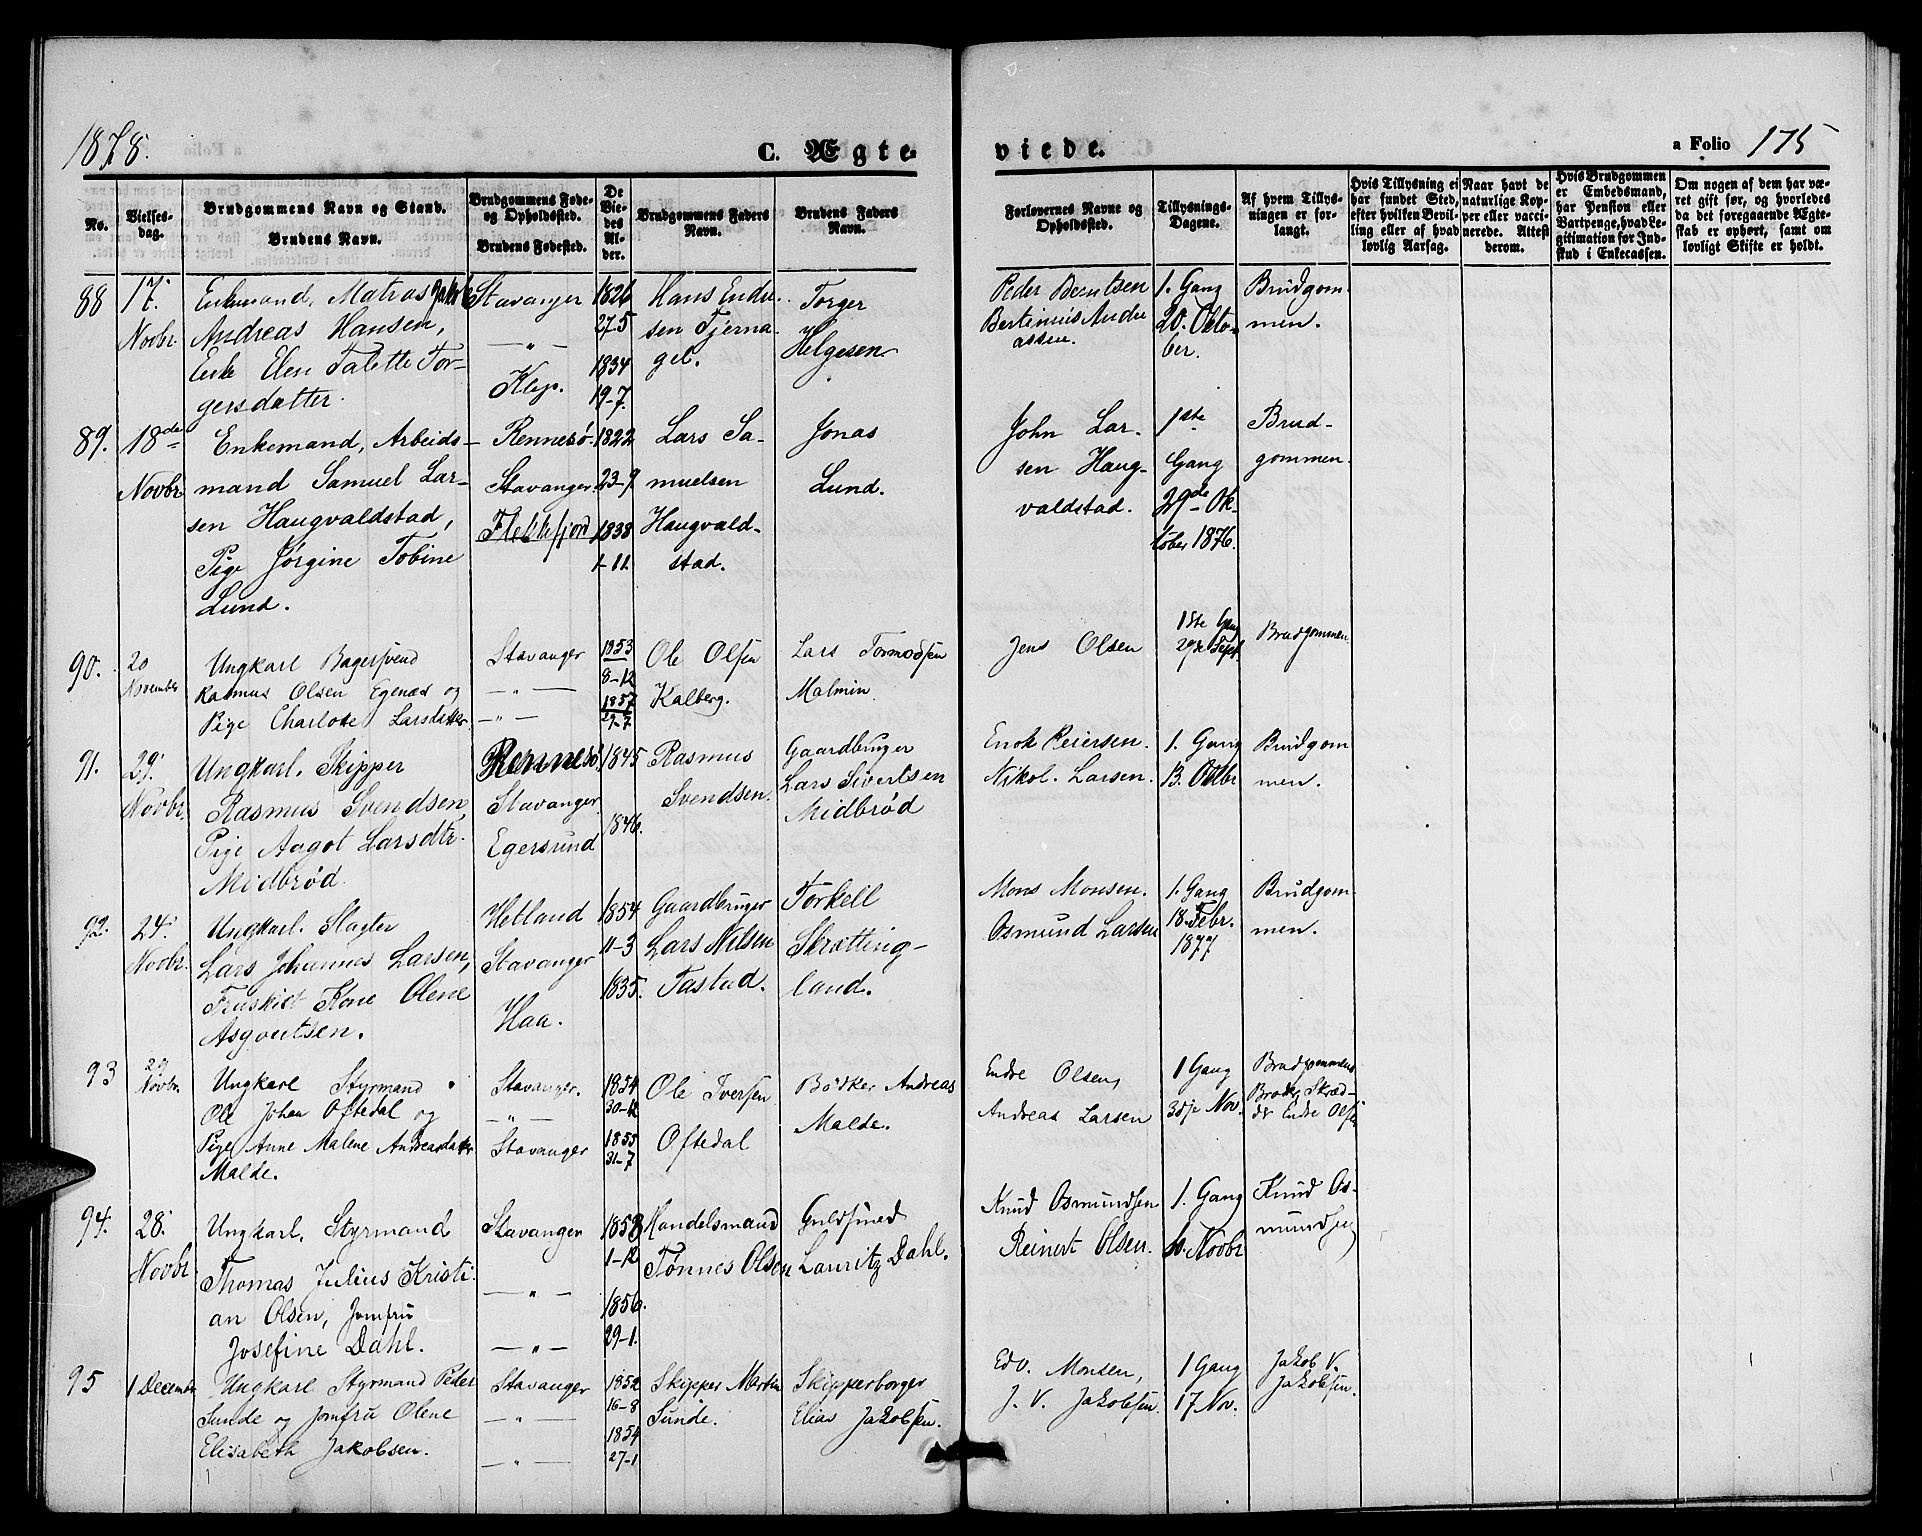 1878.
C. Ægte
viede.
a Folio 175
No.
Vielses-
dag.
Brudgommens Navn og Stand.
Brudens Navn.
Brudgommens Føde-
og Opholdssted.
Brudens Fødested.
De
Vie-
des
Al-
der.
Brudgommens Faders
Navn.
Brudens Faders
Navn.
Forlovernes Navne og
Opholdssted.
Tillysnings-
Dagene.
Af hvem Tillys-
ningen er for-
langt.
Hvis Tillysning ei
har fundet Sted,
efter hvilken Bevil-
ling eller af hvad
lovlig Aarsag.
Naar havt de
naturlige Kop-
per eller vacci-
nerede. Attest
derom.
Hvis Brudgommen
er Embedsmand,
har Pension eller
Vartpenge, hvad Le-
gitimation for Ind-
skud i Enkecassen.
Om nogen af dem har væ-
ret gift før, og hvorledes
da det foregaaende Ægte-
skab er ophørt, samt om
lovligt Skifte er holdt.
88
17.
Novbr.
Enkemand, Matros Jakob
Andreas Hansen,
Enke Elen Talette Tor-
gersdatter.
Stavanger
— „ —
Klep.
1826
27-5
1834
19-7.
Hans Endre-
sen Tjerna-
gel.
Torger
Helgesen
Peder Berntsen
Bertinius Andre
assen.
1. Gang
20. Okto-
ber.
Brudgom-
men.
89.
18de
Novbr
Enkemand, Arbeids-
mand Samuel Lar-
sen Haugvaldstad,
Pige Jørgine Tobine
Lund.
Rennesö.
Stavanger.
Flekkefjord
1822
23-9
1838
1-11.
Lars Sa-
muelsen
Haugvald-
stad.
Jonas
Lund.
John Lar-
sen Haug-
valdstad.
1ste
Gang
29de Ok-
tober 1876.
Brud-
gommen.
90.
20
November
Ungkarl Bagersvend
Rasmus Olsen Egenæs og
Pige Charlotte Larsdatter
Stavanger
— „ —
— „ —
1853
8-12
1857
29-7
Ole Olsen
Kalberg.
Lars Tormodsen
Malmin.
Jens Olsen
1ste Gang
29de Sept.
Brudgommen
91.
29.
Novbr.
Ungkarl. Skipper
Rasmus Svendsen,
Pige Aagot Larsdtr.
Midbrød.
Rennesö.
Stavanger
Egersund
1845
1846.
Rasmus
Svendsen.
Gaardbruger
Lars Sivertsen
Midbrød
Enok Reiersen.
Nikol. Larsen.
1. Gang
13. Oktbr
Brudgom
men.
92.
24.
Novbr.
Ungkarl. Slagter
Lars Johannes Larsen,
Fraskilt Kone Olene
Asgoutsen.
Hetland
Stavanger
Haa.
1854
11-3
1835.
Gaardbruger
Lars Nilsen
Tastad.
Torkell
Skretting-
land.
Mons Monsen.
Osmund Larsen
1. Gang
18. Febr.
1877
Brudgom-
men.
93
29
Novbr.
Ungkarl Styrmand
Ole Johan Oftedal og
Pige Anne Malene Andreasdatter
Malde.
Stavanger.
— „ —
Stavanger
1854
30-12
1855
31-7
Ole Iversen
Oftedal
Bødker Andreas
Malde.
Endre Olsen,
Andreas Larsen
1 Gang
3die Nov.
Brudgommens
Broder, Skræd-
dr Endre Olsen
94.
28.
Novbr
Ungkarl. Styrmand
Thomas Julius Kristi-
an Olsen, Jomfru
Josefine Dahl.
Stavanger
— „ —
— „ —
1853
1-12
1856.
29-1.
Handelsmand
Tønnes Olsen
Guldsmed
Lauritz Dahl.
Knud Osmundsen
Reinert Olsen.
1. Gang
10. Novbr
Knud Os-
mundsen
95
1 December
Ungkarl Styrmand Peder
Sunde og Jomfru Olene
Elisabeth Jakobsen.
Stavanger
— „ —
— „ —
1852
16-8
1854
27-1
Skipper Martin
Sunde.
Skipperborger
Elias Jakobsen.
Edv. Monsen,
J. V. Jakobsen.
1 Gang
17 Nov.
Jakob V.
Jakobsen.